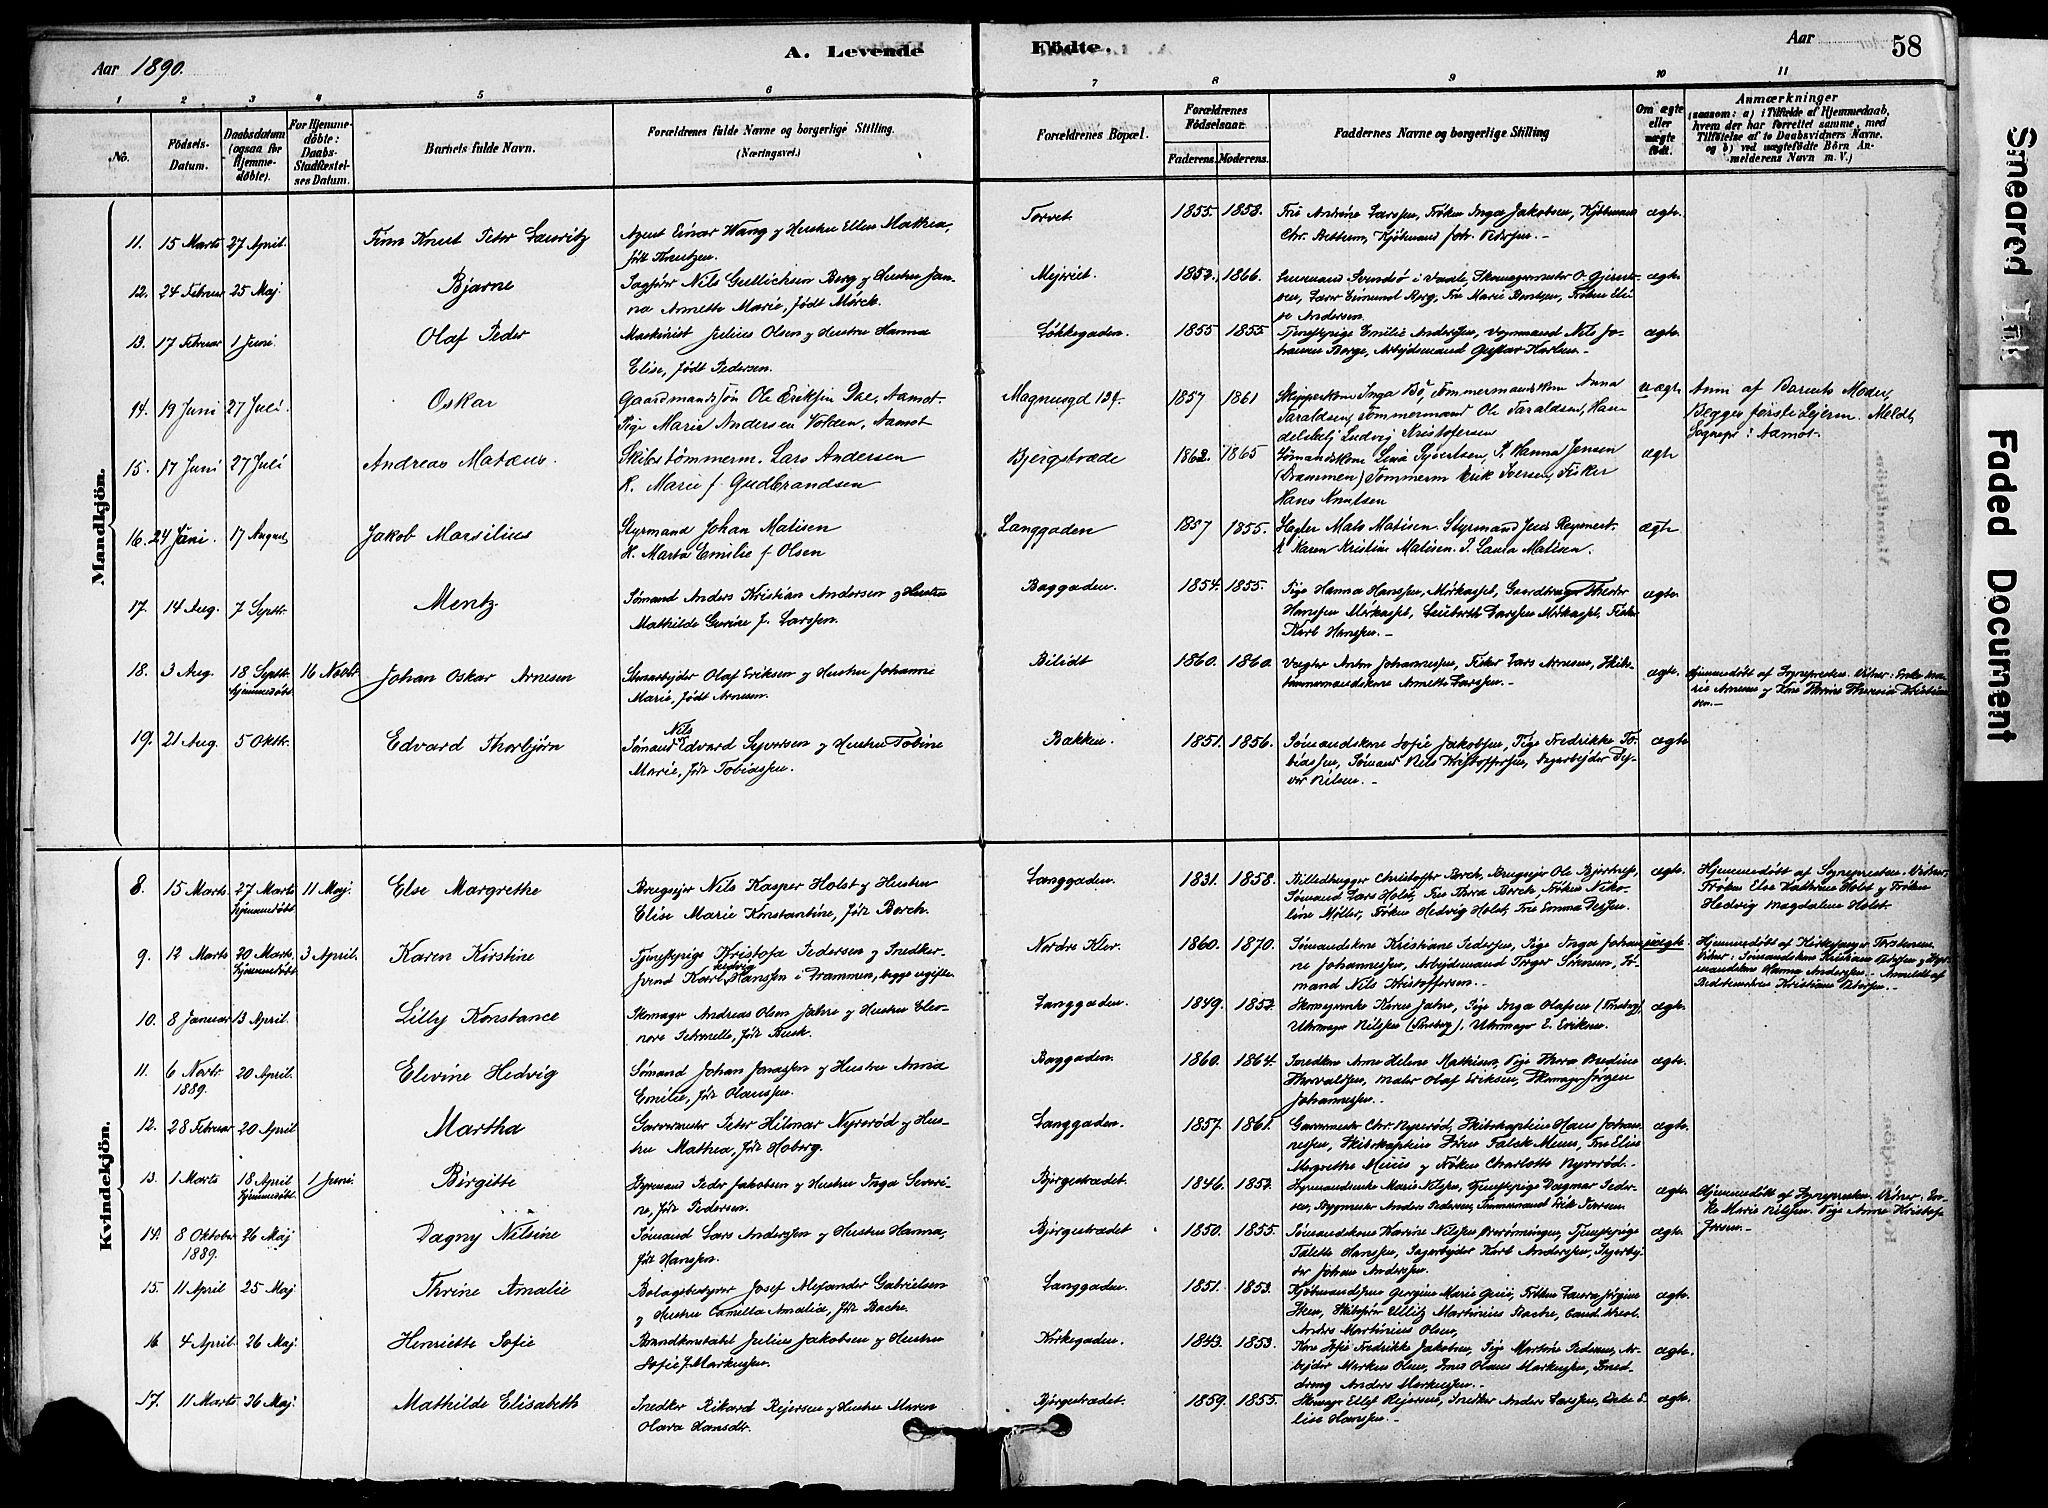 Aar 1890.
A. Levende
Födte.
Aar
58
1
2
3
4
5
6
7
8
9
10
11
No.
Födsels-
Datum.
Daabsdatum
(ogsaa for
Hjemme-
döbte).
For Hjemme-
döbte:
Daabs-
Stadfæstel-
ses Datum.
Barnets fulde Navn.
Forældrenes fulde Navne og borgerlige Stilling.
(Næringsvei.)
Forældrenes Bopæl.
Forældrenes
Födselsaar.
Faderens.
Moderens.
Faddernes Navne og borgerlige Stilling
Om ægte
eller
uægte
födt.
Anmærkninger
(saasom: a) i Tilfælde af Hjemmedaab,
hvem der har forrettet samme, med
Tilföielse af to Daabsvidners Navne,
og b) ved uægtefödte Börn An-
melderens Navn m. V.)
Mandkjön.
11. 15 Marts 27 April. Finn Knut Peter Lauritz
Agent Einar Wang og Hustru Ellen Mathea,
født Knutzen.
Torvet. 1855. 1858. Fru Andrine Larssen, Frøken Inga Jakobsen, Kjøbmand
Chr. Kjøbmand Joh. Pedersen. ægte.
12. 24 Februar 25 Maj Bjarne
Sagfører Nils Gullichsen Berg og Hustru Jan-
na Annette Marie, født Mörch.
Mejeriet. 1852. 1866. Svendsö i Skomagermester O.
Berg, Fru Marie Bentzen, Frøken Eli-
se Andersen. ægte.
13. 17 Februar 1 Juni. Olaf Peder
Maskinist Julius Olsen og Hustru Hanna
Elise, født Pedersen.
Løkkegaden. 1855 1855 Tjenestepige Emilie Anderssen, Vognmand Nils Jo-
hannes Borge, Arbejdsmand Gustav Karlsen. ægte.
14. 19 Juni 27 Juli. Oskar
Gaardmandssøn Ole Eriksen Aamot
Pige Marie Andersen Volden, Aamot
Magnusgd 1857 1861 Skipperkone Inga Bö, Tømmermandskone Anna
Taraldsen, Tømmermand Ole Taraldsen, Han
delsbetj Ludvig Kristofersen uægte Anm af Barnets Moder,
Begges første Lejerm. Meldt
Sognepr i Aamot.
15. 17 Juni 27 Juli Andreas Mateus.
Skibstømmerm. Lars Andersen
H. Marie f. Gudbrandsen
Bjergstræde 1862. 1865 Sømandskone Lina Syvertsen, P. Hanna Jensen
(Drammen) Tømmerm Erik Iversen, Fisker
Hans Knutsen ægte
16. 24 Juni. 17 August Jakob Marsilius
Styrmand Johan Matisen
H. Marta Emilie f. Olsen
Langgaden 1857 1855. Mats Matisen. Styrmand Jens
K Karen Kristine Matisen. P. Laura Matisen. ægte
17. 14 Aug. 7 Septr. Mentz.
Sømand Anders Kristian Andersen og Hustru
Mathilde Gurine f. Larssen.
Baggaden. 1854. 1855. Pige Hanna Hanssen, Mörkassel,
Hanssen Mörkassel, Larssen Mörkassel, Fisker
Karl Hanssen. ægte.
18. 3 Aug. 18 Septr. 16 Novbr. Johan Oskar Arnesen
hjemmedøbt
Stenarbejder Olaf Eriksen og Hustru Johanne
Marie, født Arnesen.
Bilidt 1860. 1860. Vægter Anton Johannessen, Fisker Lars Arnesen, Skibs-
tømmermandskone Annette Larssen. ægte. Hjemmedøbt af Sognepresten. Vidner: Enke Ma-
rie Arnesen og Kone Thrine Theresia Kristian
sen.
19. 21 Aug. 5 Oktbr. Edvard Thorbjørn
Nils
Sømand Edvard Syversen og Hustru Tobine
Marie, født Tobiassen.
Bakken. 1851. 1856. Sømandskone Sofie Jakobsen, Pige Fredrikke To-
biassen, Sømand Nils Kristoffersen, Sagarbejder
Nilsen. ægte
Kvindekjön.
8. 15 Marts. 27 Marts 11 Maj. Else Margrethe
hjemmedøbt
Brugsejer Nils Kasper Holst og Hustru
Elise Marie Konstantine, født Borch.
Langgaden. 1831. 1858. Billedhugger Christoffer Borch, Brugsejer Ole
Sømand Lars Holst, Fru Thora Borch, Frøken Niko-
line Møller, Frøken Hedvig Holst, Fru Emma ægte. Hjemmedøbt af Sognepresten. Vidner:
Frøken Else Kathrine Holst og Frøken
Hedvig Magdalene Holst.
9. 12 Marts 20 Marts 3 April. Karen Kirstine
hjemmedøbt
Tjenestepige Kristofa Pedersen og Snedker-
svend Karl Ludvig Hanssen i Drammen, begge ugifte.
Nordre Klev. 1860. 1870. Sømandskone Kristiane Pedersen, Pige Inga Johan-
ne Johannessen, Arbejdsmand Sørensen, Sø-
mand Nils Kristoffersen. uægte. Hjemmedøbt af Kirkesanger
Vidner: Sømandskone Kristiane Pedersen og
Hanna Anderssen. Anmeldt af
Bedstemoder Kristiane Pedersen.
10. 8 Januar 13 April. Lilly Konstance
Skomager Andreas Olsen Jahre og Hustru Eleo-
nore Petronelle, født Busk.
Langgaden. 1849. 1852. Skomagerenke Karen Jahre, Pige Inga Olafsen (Tønsberg)
Uhrmager Nilssen (Tønsberg), Uhrmager E. Eriksen. ægte.
11. 6 Novbr. 20 April. Elevine Hedvig
1889.
Sømand Johan Jonassen og Hustru Anna
Emilie, født Olaussen.
Baggaden. 1860. 1864. Snedkerk. Anne Helene Mathisen, Pige Thora Bredine
Thorvaldsen, Maler Olaf Eriksen, Skomager Jørgen
Johannessen. ægte.
12. 28 Februar 20 April Martha
Garvermester Peter Hilmar Nyrerød og Hus-
tru Mathea, født Hoberg.
Langgaden. 1857. 1861. Garvermester Chr. Nyrerød, Skibskaptein Hans Johan-
nessen, Skibskaptein Søren Falck Muus, Fru Elise
Margrethe Muus og Frøken Charlotte Nyrerød. ægte.
13. 1 Marts 18 April 1 Juni. Birgitte
hjemmedøbt
Styrmand Peder Jakobsen og Hustru Inga Severi-
ne, født Pedersen.
Bjergestrædet. 1846. 1852. Styrmandsenke Marie Nilssen, Tjenestepige Dagmar Peder-
sen, Bygmester Anders Pedersen, Tømmermand Erik Iverssen. ægte. Hjemmedøbt af Sognepresten. Vidner: En-
ke Marie Nilssen. Pige Anne Kristofa
Iversen.
14. 8 Oktober 26 Maj Dagny Nilsine
1889.
Sømand Lars Anderssen og Hustru Hanna,
født Hanssen.
Bjergestrædet 1850. 1855. Sømandskone Karine Nilssen Tjenestepige
Talette Hanssen, Sagarbejder Karl Anderssen, Sagarbej-
der Johan Anderssen. ægte.
15. 11 April 25 Maj Thrine Amalie
Bolagsbestyrer Josef Alexander Gabrielsen
og Hustru Camilla Amalia, født Bache.
Langgaden. 1851. 1853. Kjøbmandsfru Gergine Marie Frøken Laura Jørgine
Steen, Skibsfører Ulliz Martinius Bache, Cand. theol.
Anders Martinius Olsen, ægte.
16 4 April. 26 Maj. Henriette Sofie
Brandkonstabel Julius Jakobsen og Hustru
Sofie f. Markussen.
Kirkegaden. 1843. 1853. Kone Sofie Fredrikke Jakobsen, Pige Martine Pedersen, Ar-
bejder Markus Olsen, Olaus Markussen,
dreng Anders Markussen. ægte.
17. 11 Marts 26 Maj. Mathilde Elisabeth
Snedker Rikard Rejersen og Hustru Maren
Olava Hansdtr.
Bjergestrædet. 1859. 1855. Skomager Ellef Rejersen, Snedker Anders Larssen, Enke E-
lise Hanssen. ægte.
Smeared Ink
Faded Document